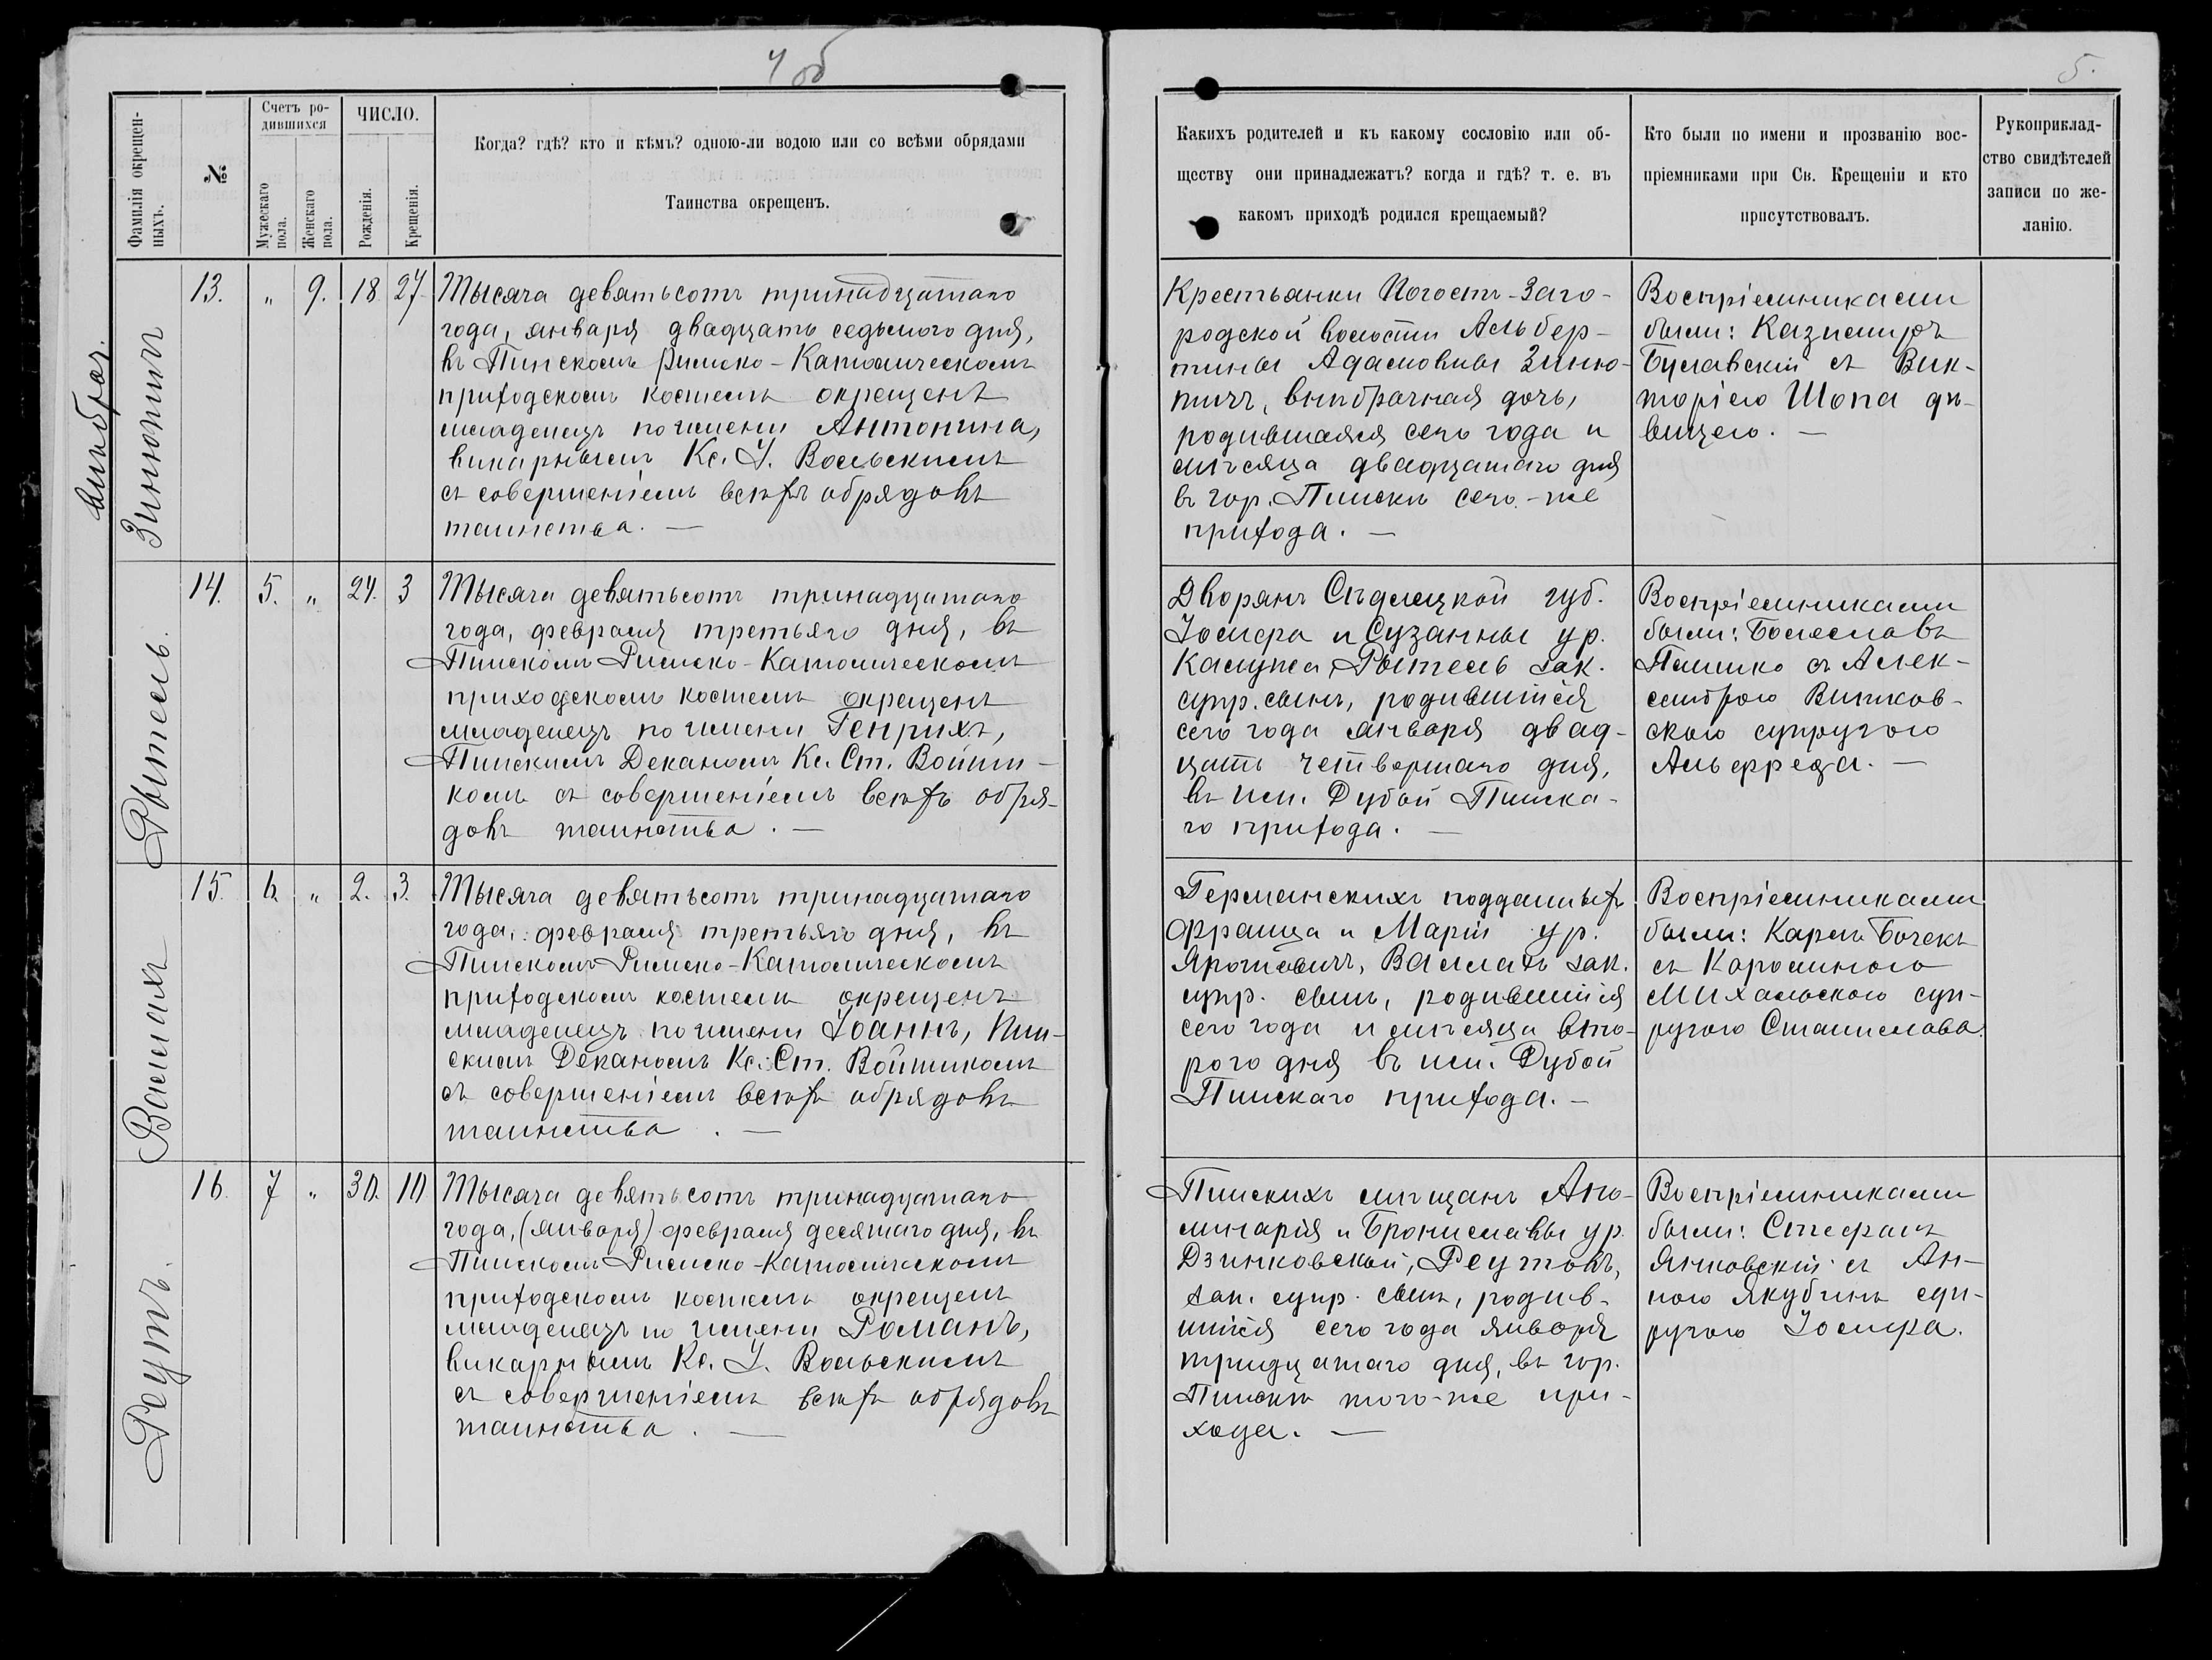 4 об
5.
Фамилія окрещен-
ныхъ.
№
Счетъ ро-
дившихся
Мужескаго
пола.
Женскаго
пола.
ЧИСЛО.
Рожденія.
Крещенія.
Когда? гдѣ? кто и кѣмъ? одною-ли водою или со всѣми обрядами
Таинства окрещенъ.
Какихъ родителей и къ какому сословію или об-
ществу они принадлежатъ? когда и гдѣ? т. е. въ
какомъ приходѣ родился крещаемый?
Кто были по имени и прозванію вос-
пріемниками при Св. Крещеніи и кто
присутствовалъ.
Рукоприклад-
ство свидѣтелей
записи по же-
ланію.
внѣбрач.
Зинютичъ
13. " 9. 18 27
Тысяча девятьсотъ тринадцатаго
года, января двадцать седьмого дня,
въ Пинскомъ Римско-Католическомъ
приходскомъ костелѣ окрещенъ
младенецъ по имени Антонина,
викарнымъ Кс. І. Вольскимъ
съ совершеніемъ всѣхъ обрядовъ
таинства. —
Крестьянки Погостъ-Заго-
родской волости Альбер-
тины Адамовны Зиню-
тичъ, внѣбрачная дочь,
родившаяся сего года и
мѣсяца двадцатаго дня
въ гор. Пинскѣ сего-же
прихода. —
Воспріемниками
были: Казимиръ
Буславскій съ Вик-
торіею Шопа дѣ-
вицею. —
Рытель.
14. 5. " 24. 3
Тысяча девятьсотъ тринадцатаго
года, февраля третьяго дня, въ
Пинскомъ Римско-Католическомъ
приходскомъ костелѣ окрещенъ
младенецъ по имени Генрихъ,
Пинскимъ Деканомъ Кс. Ст. Войти-
комъ съ совершеніемъ всѣхъ обря-
довъ таинства. —
Дворянъ Сѣдлецкой губ.
Іосифа и Сузанны ур.
Калужа, Рытель зак.
супр. сынъ, родившійся
сего года января двад-
цать четвертаго дня,
въ им. Дубой Пинска-
го прихода. —
Воспріемниками
были: Болеславъ
Пашко съ Алек-
сандрою Витков-
скою супругою
Альфреда. —
Валлахъ
15. 6. " 2. 3.
Тысяча девятьсотъ тринадцатаго
года, февраля третьяго дня, въ
Пинскомъ Римско-Католическомъ
приходскомъ костелѣ окрещенъ
младенецъ по имени Іоаннъ, Пин-
скимъ Деканомъ Кс. Ст. Войтикомъ
съ совершеніемъ всѣхъ обрядовъ
таинства. —
Германскихъ подданныхъ
Франца и Маріи ур.
Ярошевичъ, Валлахъ зак.
супр. сынъ, родившійся
сего года и мѣсяца вто-
рого дня въ им. Дубой
Пинскаго прихода. —
Воспріемниками
были: Карлъ Бочекъ
съ Каролиною
Михальскою суп-
ругою Станислава.
Реутъ.
16. 7 " 30. 10
Тысяча девятьсотъ тринадцатаго
года, (января) февраля десятаго дня, въ
Пинскомъ Римско-Католическомъ
приходскомъ костелѣ окрещенъ
младенецъ по имени Романъ,
викарнымъ Кс. І. Вольскимъ
съ совершеніемъ всѣхъ обрядовъ
таинства. —
Пинскихъ мѣщанъ Апо-
линарія и Брониславы ур.
Дзинковской, Реутовъ,
зак. супр. сынъ, родив-
шійся сего года января
тридцатаго дня, въ гор.
Пинскѣ того-же при-
хода. —
Воспріемниками
были: Стефанъ
Янковскій съ Ан-
ною Якубинъ суп-
ругою Іосифа.